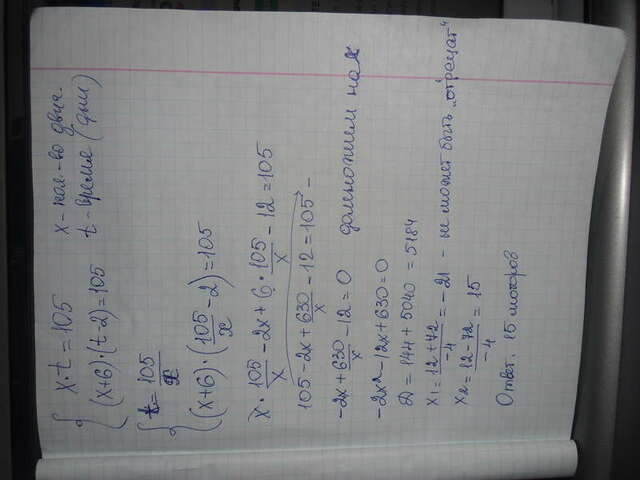 x·t=105 x - кол-во двиг.
(x+6)·(t-2)=105 t - время (дни)
t=105/x
(x+6)·(105/x-2)=105
x·105/x-2x+6·105/x-12=105
105-2x+630/x-12=105-
-2x+630/x-12=0 домножием на x
-2x²-12x+630=0
Д=144+5040=5184
x₁=12+72/-4=-21 - не может быть „отрецат"
x₂=12-72/-4=15
Ответ. 15 моторов